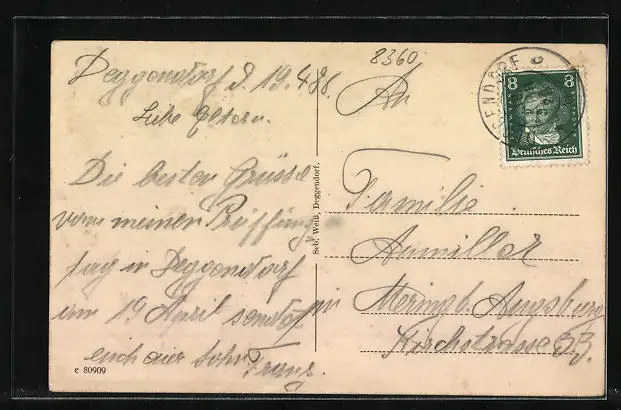 8360
Deggendorf d. 19.4.28.
Liebe Eltern.
Die besten Grüsse
vom meinen Prüffung
tag in Deggendorf
am 19 April sendet
euch euer Sohn Franz.
An
Familie
Aumiller
in Mering b. Augsburg
Kirchstrasse 53.
GENDORF
8 8
Deutsches Reich
Sebl. Weiß, Deggendorf.
e 80909